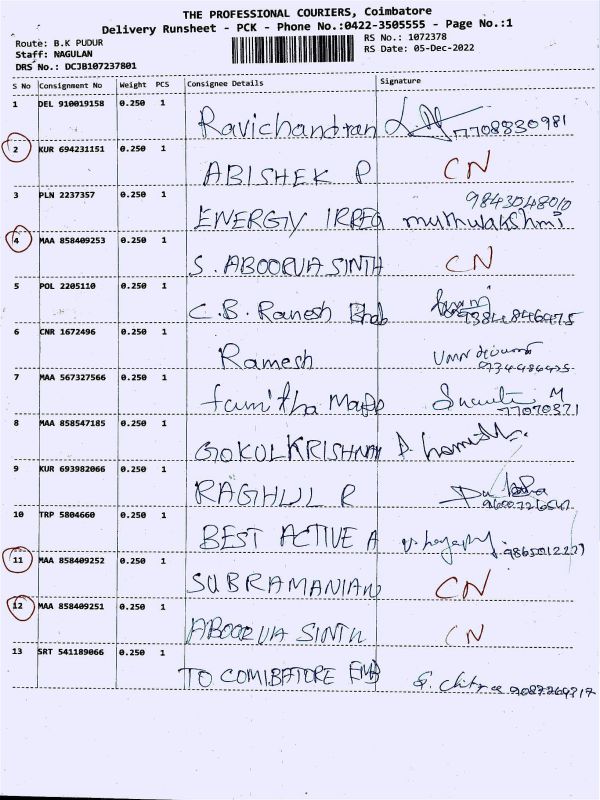 THE PROFESSIONAL COURIERS, Coimbatore
Delivery Runsheet - PCK - Phone No.:0422-3505555 - Page No.:1
Route: B.K PUDUR
RS No.: 1072378
Staff: NAGULAN
RS Date: 05-Dec-2022
DRS No.: DCJB107237801
S No Consignment No Weight PCS Consignee Details Signature
1 DEL 910019158 0.250 1 Ravichandran 7708830981
2 KUR 694231151 0.250 1 ABISHEK P CN
3 PLN 2237357 0.250 1 ENERGIY IRREG 9843048010
muthulakshmi
4 MAA 858409253 0.250 1 S. ABOORVA SINTH CN
5 POL 2205110 0.250 1 C.B. Ranesh Bhab
6 CNR 1672496 0.250 1 Ramesh
7 MAA 567327566 0.250 1 M
77070371
8 MAA 858547185 0.250 1 GOKULKRISHNAN
9 KUR 693982066 0.250 1 RAGHUL R
10 TRP 5804660 0.250 1 BEST ACTIVE A
11 MAA 858409252 0.250 1 SUBRAMANIAN CN
12 MAA 858409251 0.250 1 ABOORVA SINTH CN
13 SRT 541189066 0.250 1 TO COMIBATORE